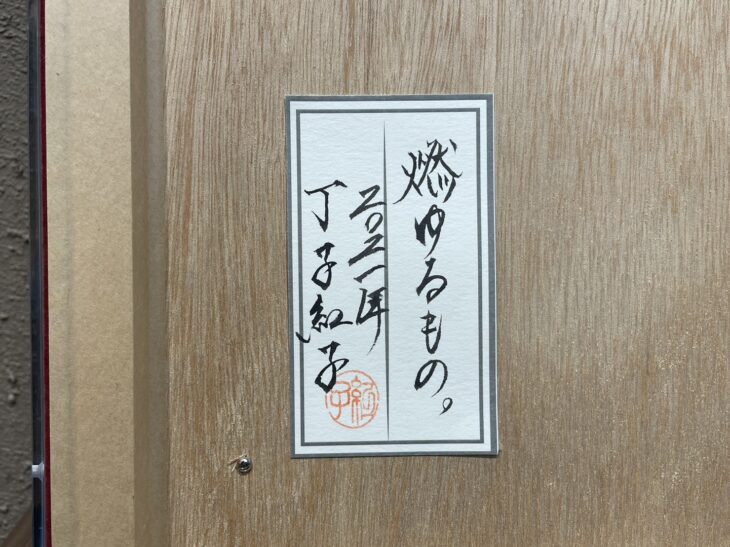 燃ゆるもの。
二〇二一年
丁子紅子
紅子